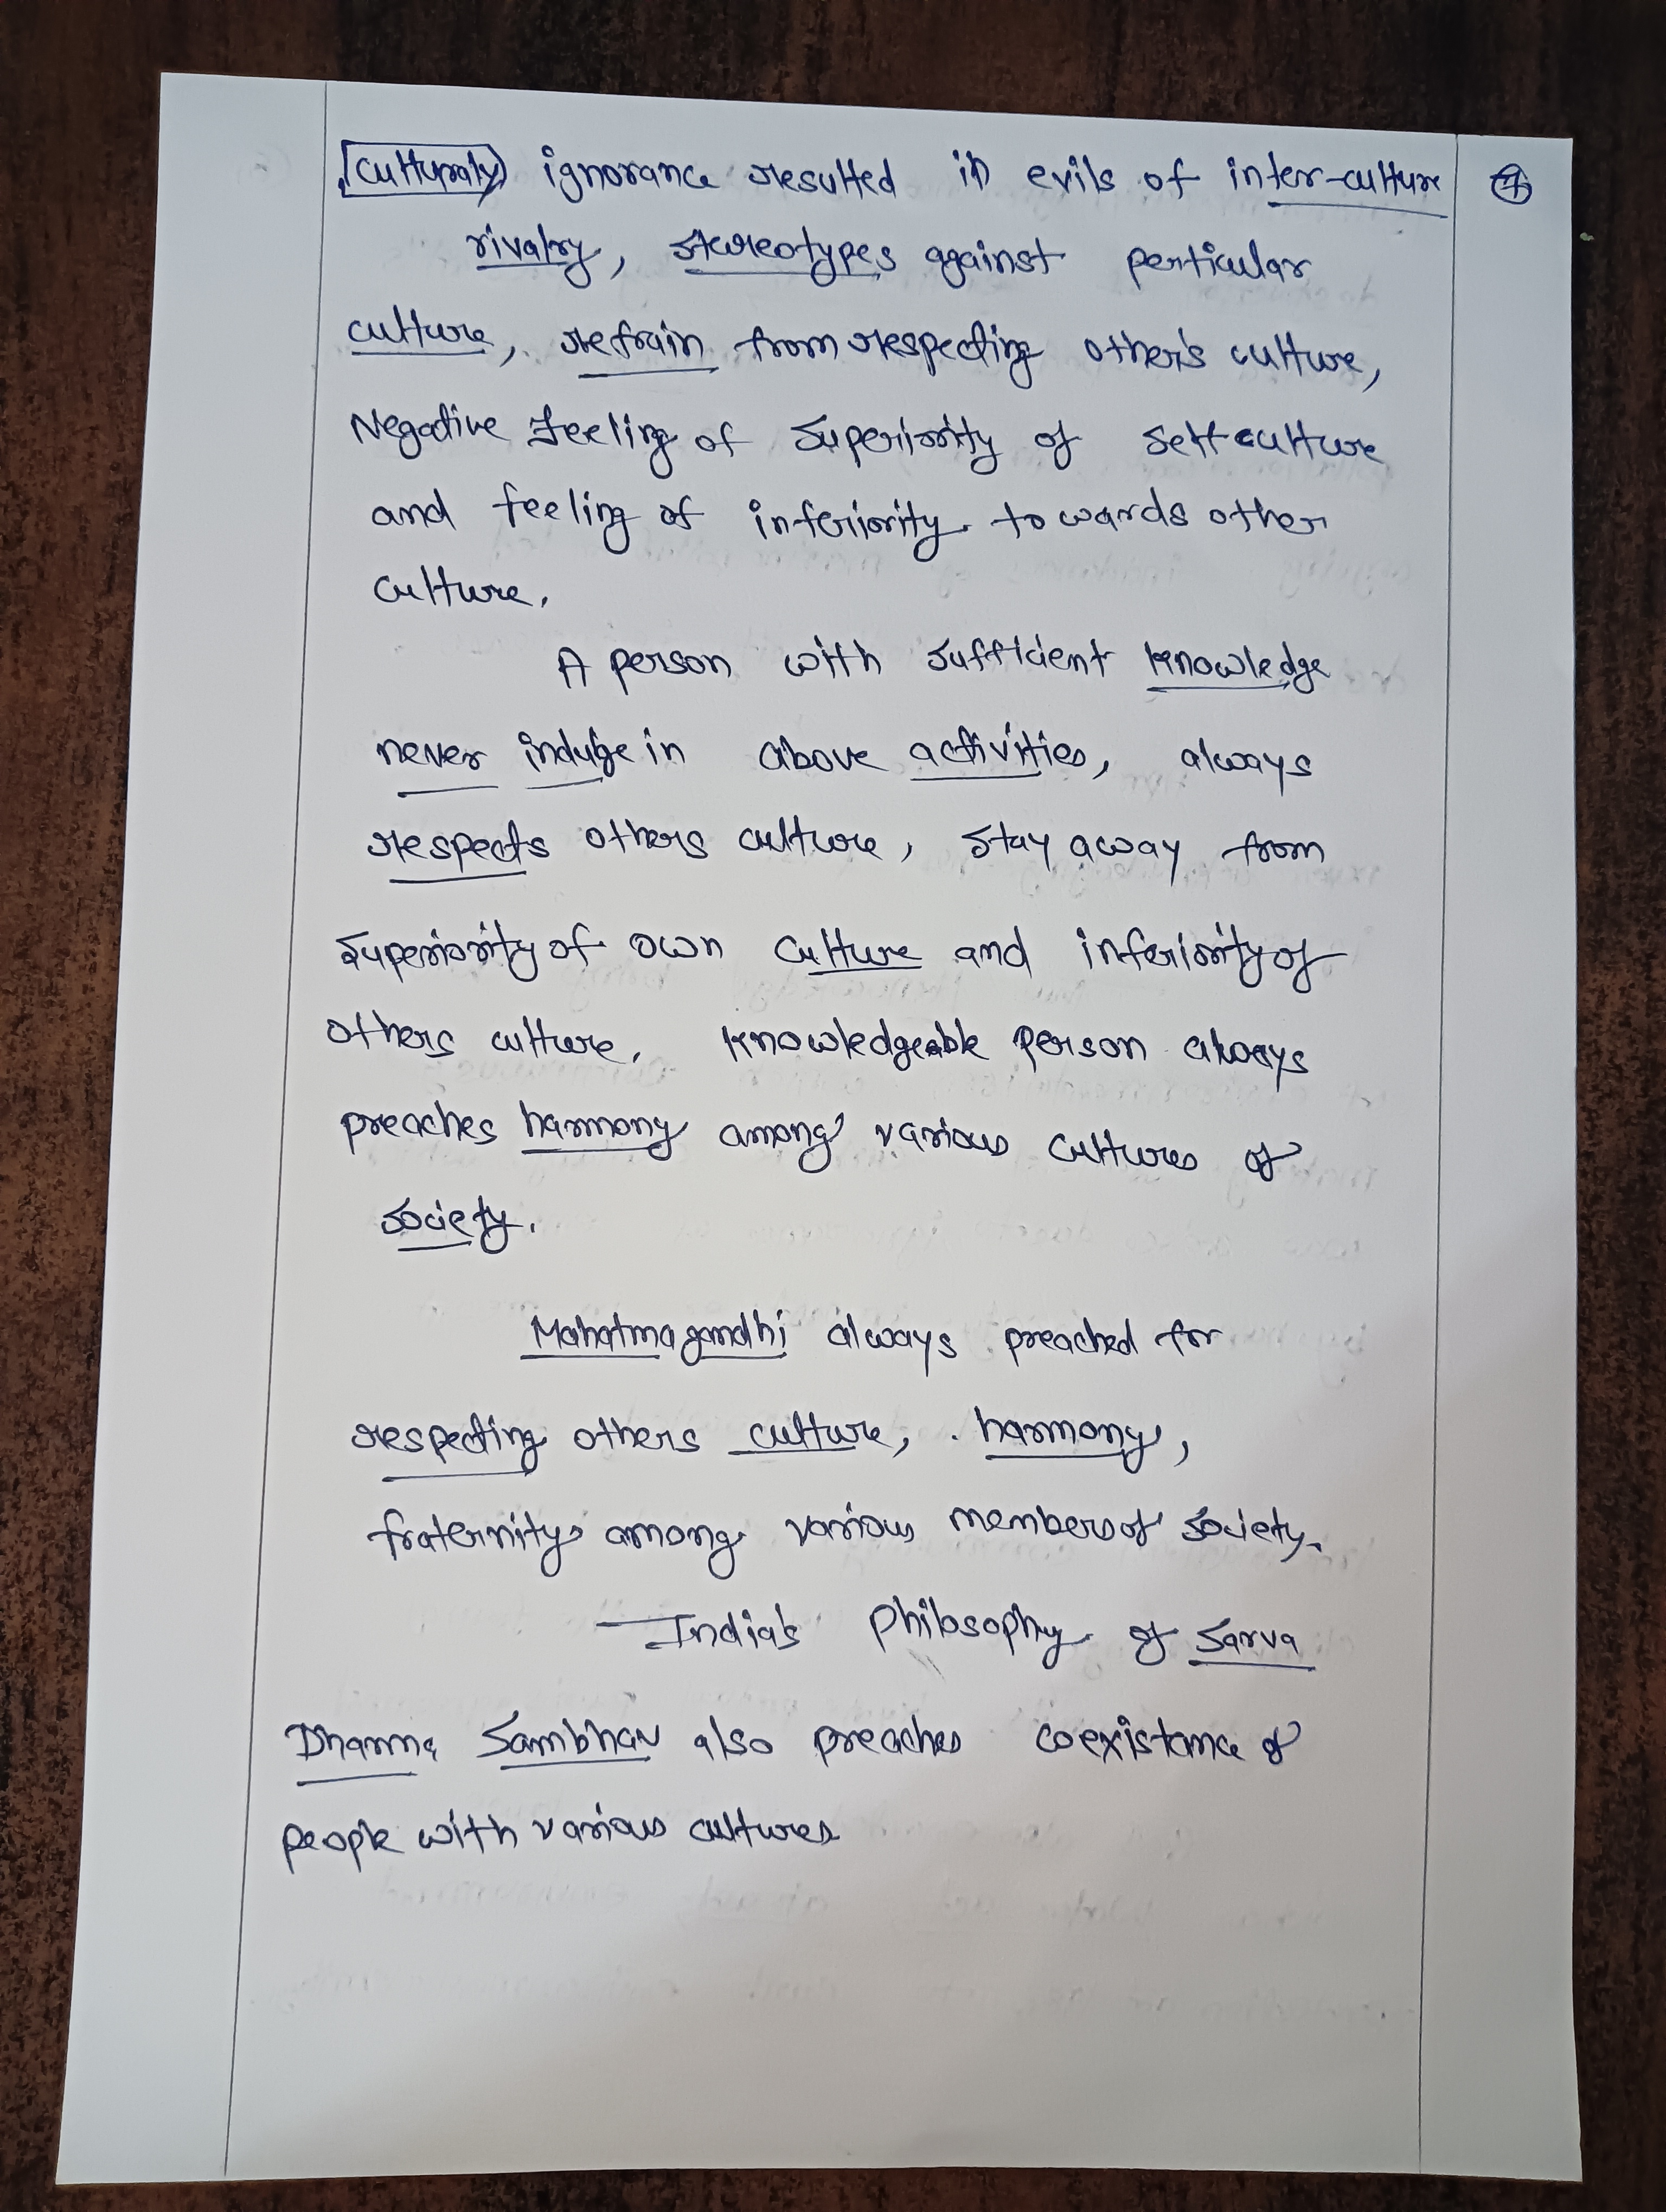 Culturaly ignorance resulted in evils of inter-culture
7
rivalry, stereotypes against perticular
culture, refrain from respecting other's culture,
Negative feeling of superiority of self culture
and feeling of inferiority towards other
culture.
A person with sufficient knowledge
never indulge in above activities, always
respects others culture, stay away from
superiority of own culture and inferiority of
others culture. knowledgeable person always
preaches harmony among various cultures of
society.
Mahatma gandhi always preached for
respecting others culture, harmony,
fraternity among various members of society.
India's philosophy of Sarva
Dharma Sambhav also preaches coexistance of
people with various cultures